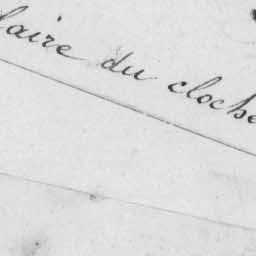 faire du cloche